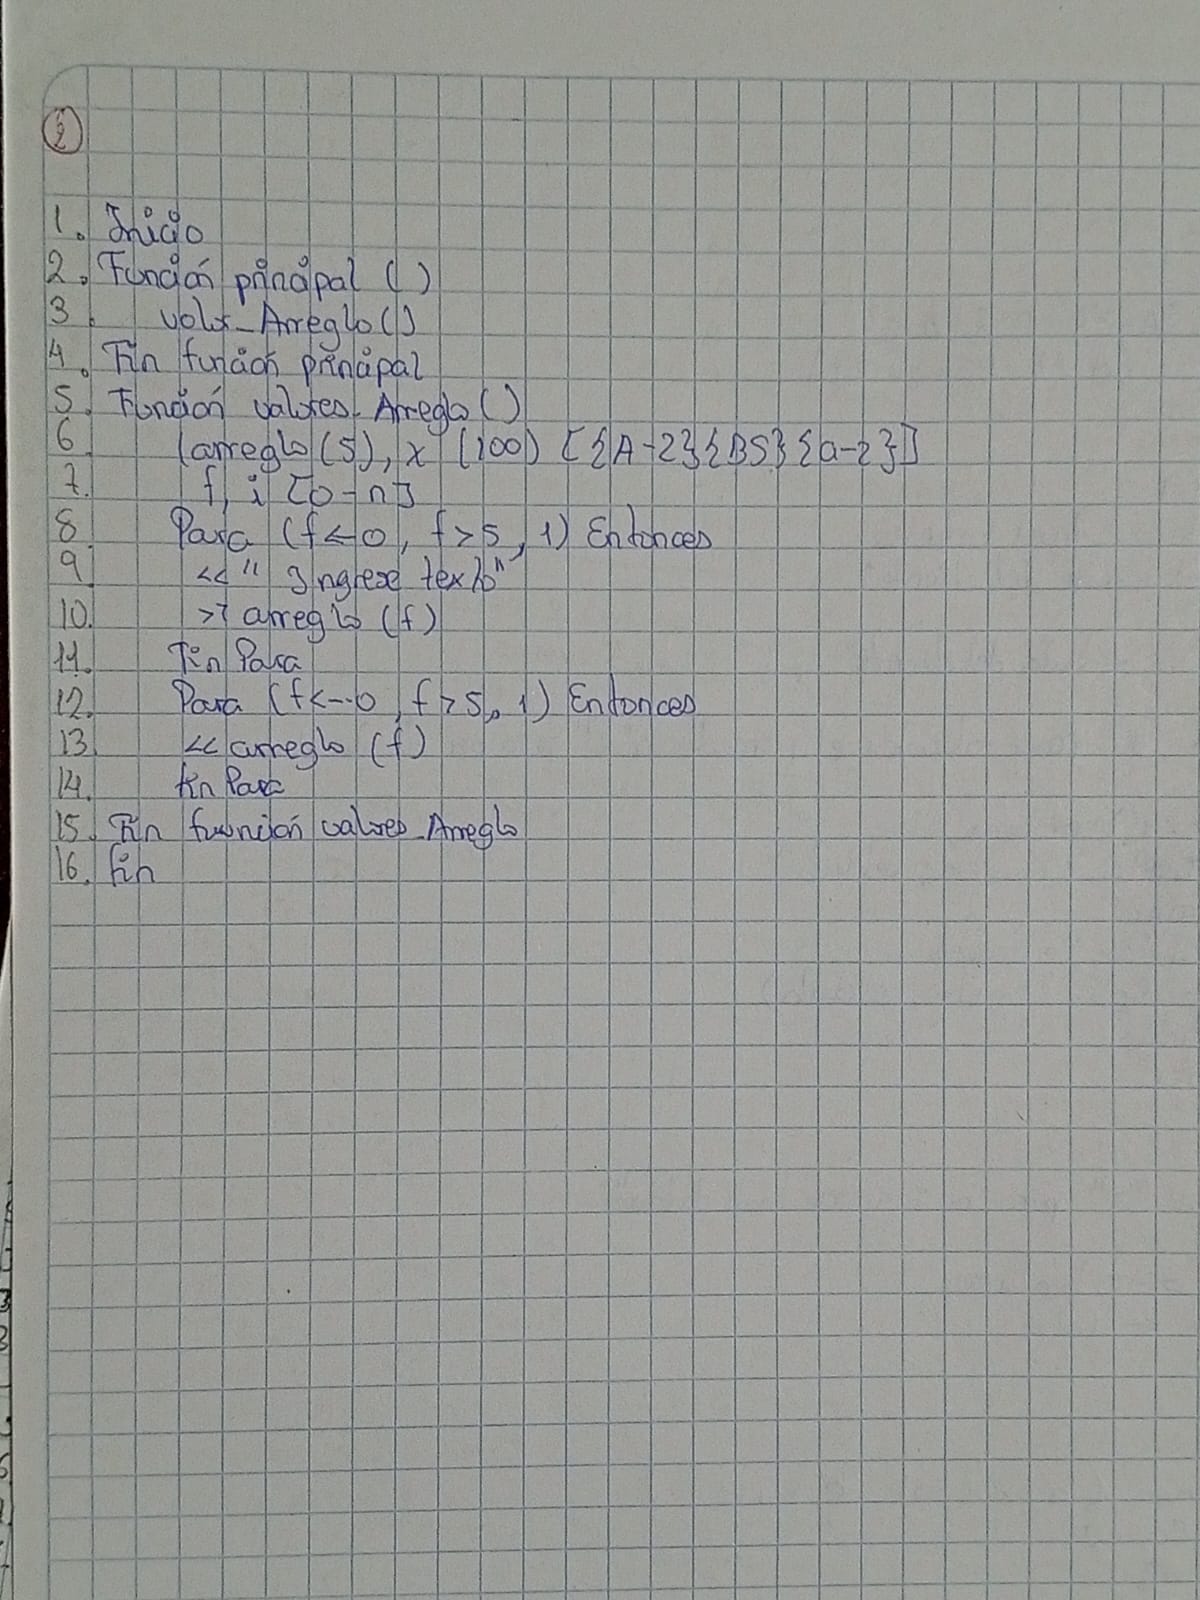 1. Inicio
2. Función principal ( )
3. valor_Arreglo()
4. Fin función principal
5. Función valores_Arreglo()
6 (arreglo(5), x (100) [{A-Z}{BS}{a-z}]
7. f, i [0-n]
8 Para (f<-0, f>5, 1) Entonces
9 << "Ingrese texto"
10. >> arreglo (f)
11. Fin Para
12. Para (f<-0, f>5, 1) Entonces
13. << arreglo (f)
14. fin Para
15. Fin función valores_Arreglo
16. fin